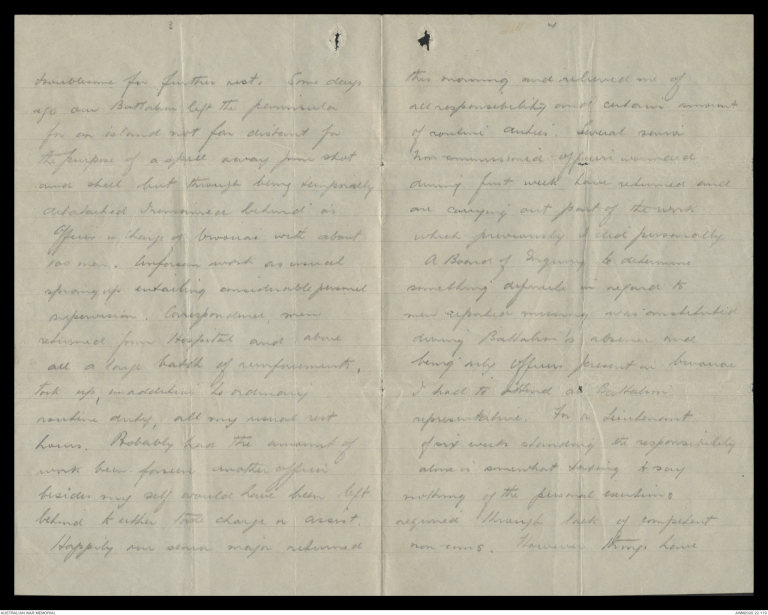 3
troublesome for further rest. Some days
ago our Battalion left the peninsula
for an island not far distant for
the purpose of a spell away from shot
and shell but through being temporally
detatached I remained behind as
Officer in Charge of bivouac with about
100 men. Unforseen work as usual
sprang up entailing considerable personal
supervision. Correspondence, men
returned from Hospital and above
all a large batch of reinforcements,
took up, in addition to ordinary
routine duty, all my usual rest
hours. Probably had the amount of
work been forseen another officer
besides my self would have been left
behind to either take charge or assist.
Happily our senior major returned
4
this morning and relieved me of
all responsibility and certain amount
of routine duties. Several senior
Non commissioned officers wounded
during first week have returned and
are carrying out part of the work
which previously I did personally
A Board of Inquiry to determine
something definite in regard to
men reported missing was constituted
during Battalion's absence and
being only officer present in bivouac
I had to attend as Battalion
representative. For a Lieutenant
of six weeks standing the responsibility
alone is somewhat testing to say
nothing of the personal exertions
required through lack of competent
non coms. However things have
AUSTRALIAN WAR MEMORIAL